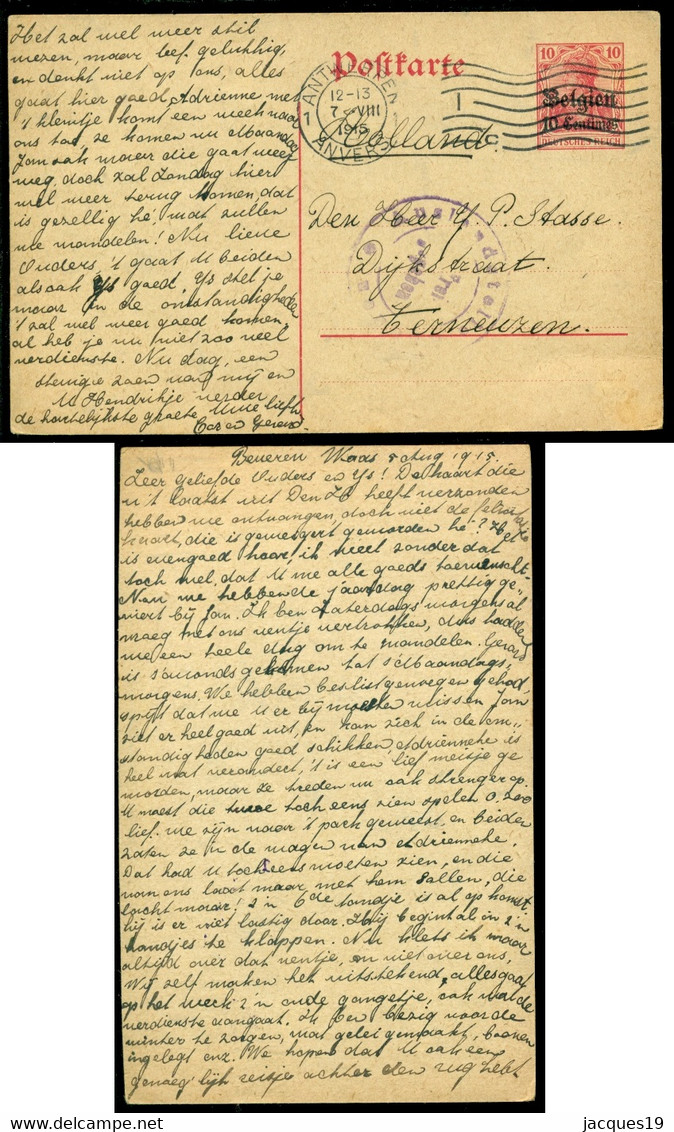 Het zal wel weer stil
wezen, maar leef gelukkig,
en denkt niet op ons, alles
gaat hier goed, Adrienne met
't kleintje komt een week naar
ons toe, ze komen nu Maandag
Jan ook maar die gaat weer
weg, doch zal Zondag hier
wel weer terug komen, dat
is gezellig hè, wat zullen
we wandelen! Nu lieve
Ouders, 't gaat U beiden
alsook Ys goed, Ys stel je
maar in de omstandigheden
't zal wel weer goed komen,
al heb je nu niet zoo veel
verdienste. Nu dag, een
stevige zoen van mij en
Hendrikje verder
de hartelijkste groete Uwe liefh.
Cor en Gerard.
Postkarte
ANTWERPEN
12-13
7 VIII
1915
ANVERS
1
10 10
Belgien
10 Centimes
DEUTSCHES REICH
Holland
Den Heer Y. P. Stasse.
Dijkstraat.
Terneuzen.
Beveren Waas 5 Aug 1915.
Zeer geliefde Ouders en Ys! De kaart die
u 't laatst uit Den H heeft verzonden
hebben we ontvangen, doch niet de felicitatie
kaart, die is geweigert geworden hè? Het
is evengoed hoor, ik weet zonder dat
toch wel, dat U me alle goeds toewenscht.
Nou we hebben de jaardag prettig ge„
viert bij Jan. Ik ben Zaterdags morgens al
vroeg met ons ventje vertrokken, dus hadden
we een heele dag om te wandelen. Gerard
is s'avonds gekomen tot s'Maandags,
morgens. We hebben beslist genoegen gehad,
spijt dat we U er bij moesten missen Jan
ziet er heel goed uit, en kan zich in de om„
standigheden goed schikken, Adrienneke is
heel wat verandert, 't is een lief meisje ge
worden, maar ze treden nu ook strenger op.
U moest die twee toch eens zien spelen o, zoo
lief. we zijn naar 't park geweest en beiden
zaten ze in de wagen van Adrienneke.
Dat had U toch eens moeten zien, en die
van ons laat maar met hem sollen, die
lacht maar! Z'n 6de tandje is al op komst
hij is er niet lastig door. Hij begint al in z'n
handjes te klappen. Nu klets ik maar
altijd over dat ventje, en niet over ons,
Wij zelf maken het uitstekend, alles gaat
op het werk z'n oude gangetje, ook wat de
verdienste aangaat. Ik ben bezig voor de
winter te zorgen, wat gelei gemaakt, boonen
ingelegt enz. We hopen dat U ook een
genoeg'lijk reisje achter den rug hebt.
jacques19